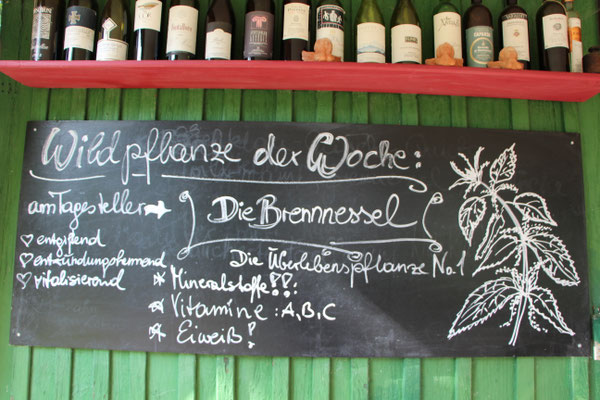 Wildpflanze der Woche:
am Tagesteller
Die Brennnessel
Die Überlebenspflanze No.1
entgiftend
entzündungshemmend
vitalisierend
Mineralstoffe!!:
Vitamine: A, B, C
Eiweiß!